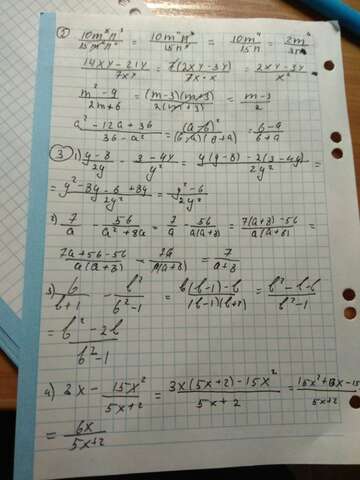 ② 10m⁸n³/15m⁴n⁴ = 10m⁴n³/15n⁴ = 10m⁴/15n = 2m⁴/3n
14xy-21y/7xy = 7(2xy-3y)/7x·x = 2xy-3y/x²
m²-9/2m+6 = (m-3)(m+3)/2(m+3) = m-3/2
a²-12a+36/36-a² = (a-6)²/(6-a)(6+a) = 6-a/6+a
③ 1) y-8/2y - 3-4y/y² = y(y-8)-2(3-4y)/2y² =
= y²-8y-6+8y/2y² = y²-6/2y²
2) 7/a - 56/a²+8a = 7/a - 56/a(a+8) = 7(a+8)-56/a(a+8) =
7a+56-56/a(a+8) - 7a/a(a+8) = 7/a+8
3) b/b+1 - b²/b²-1 = b(b-1)-b/(b-1)(b+1) = b²-b-b/b²-1
= b²-2b/b²-1
4) 3x - 15x²/5x+2 = 3x(5x+2)-15x²/5x+2 = 15x²+6x-15/5x+2
= 6x/5x+2